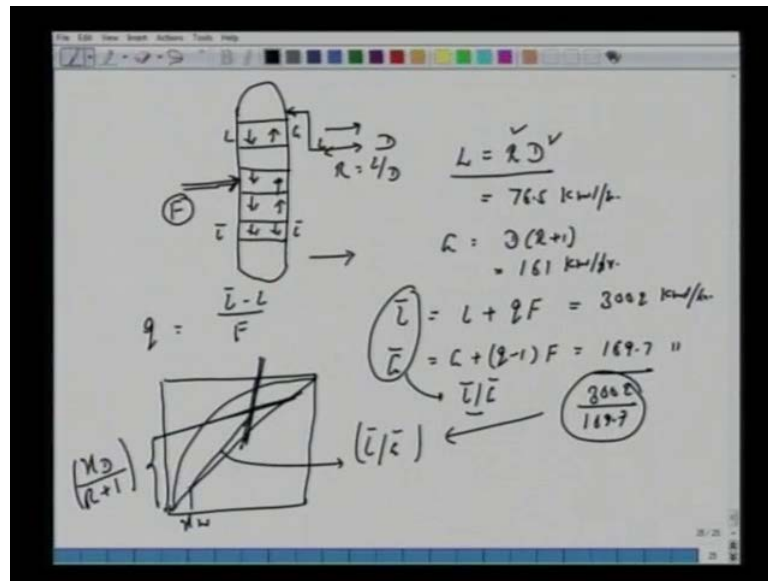 File Edit View Insert Actions Tools Help
L G
L
D
R = L/D
F
L̄
L = R D
= 76.5 Kmol/h.
G = D(R+1)
= 161 Kmol/hr.
q = (L̄ - L)/F
L̄ = L + qF = 3002 Kmol/h.
Ḡ = G + (q-1) F = 169.7 "
L̄/Ḡ
3002/169.7
(L̄/Ḡ)
(xD/(R+1))
xw
25/25
25